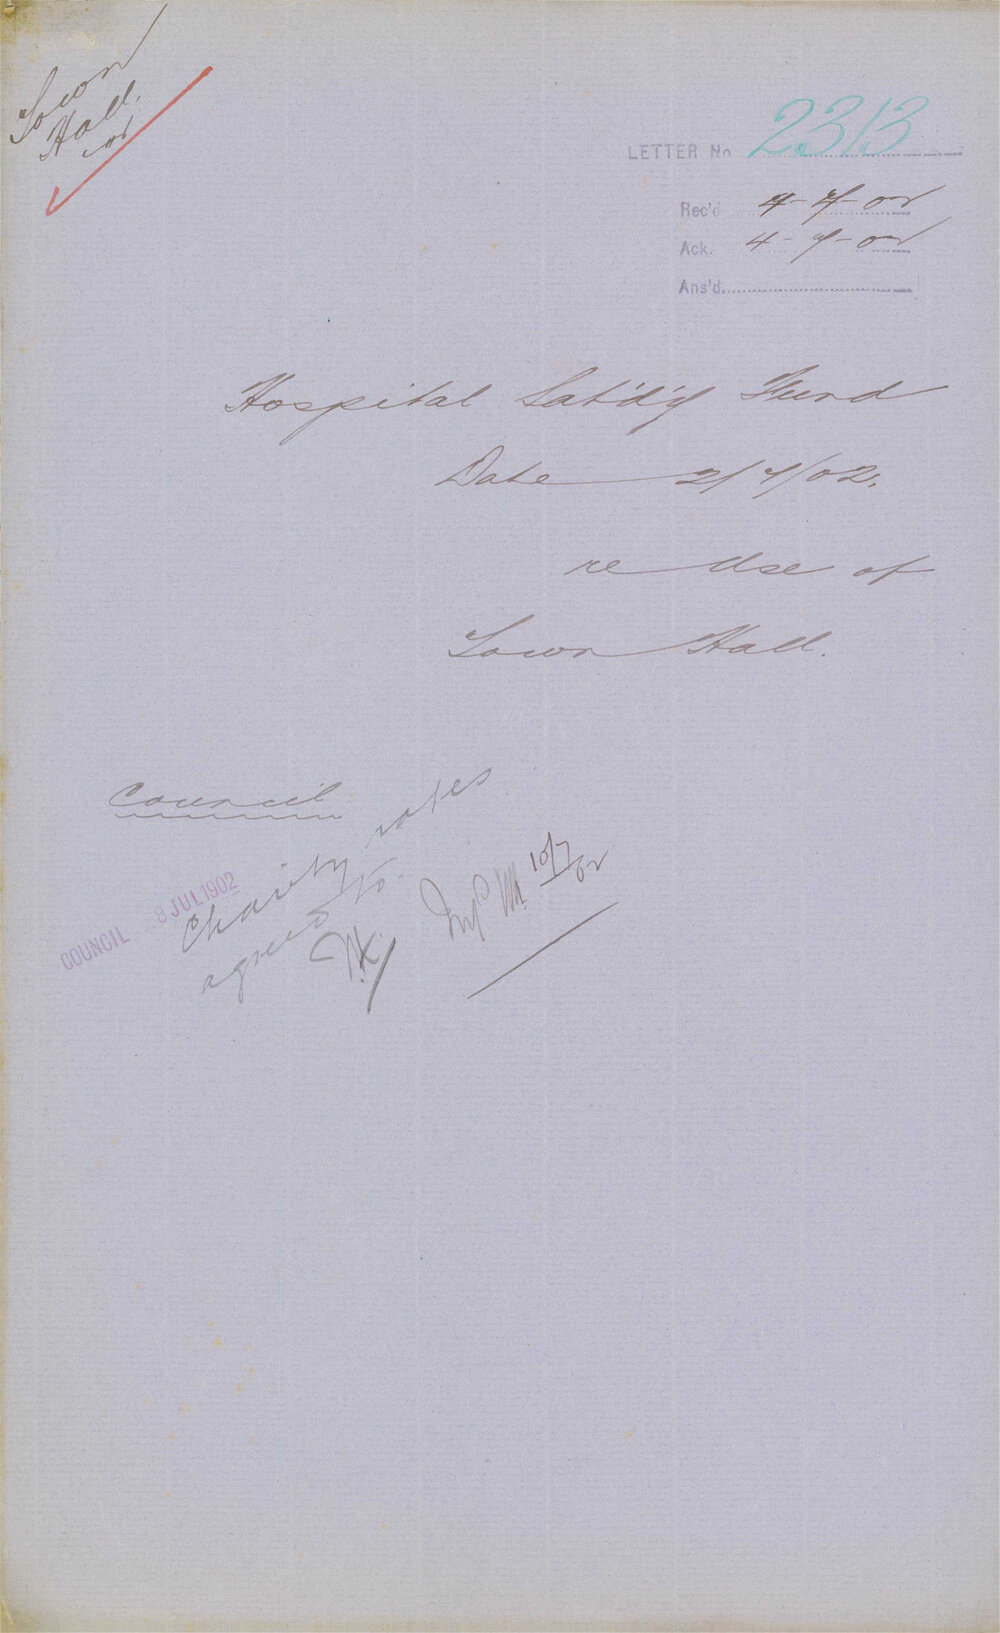 Town
Hall.
02
LETTER No 2313
Rec'd 4-7-02
Ack. 4-7-02
Ans'd
Hospital Sat'd'y Fund
Date 2/7/02.
re Use of
Town Hall.
Council
COUNCIL 8 JUL 1902
Charity rates
agreed to.
10/7/02